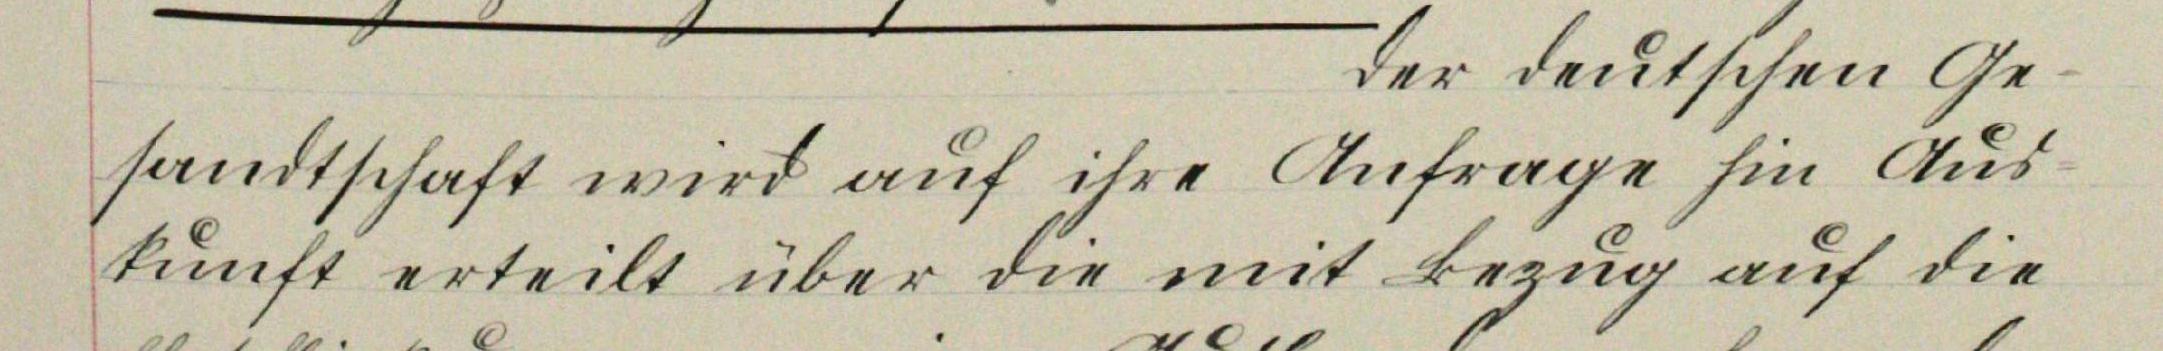 Der deutschen Ge-
sandtschaft wird auf ihre Anfrage hin Aus-
kunft erteilt über die mit Bezug auf die